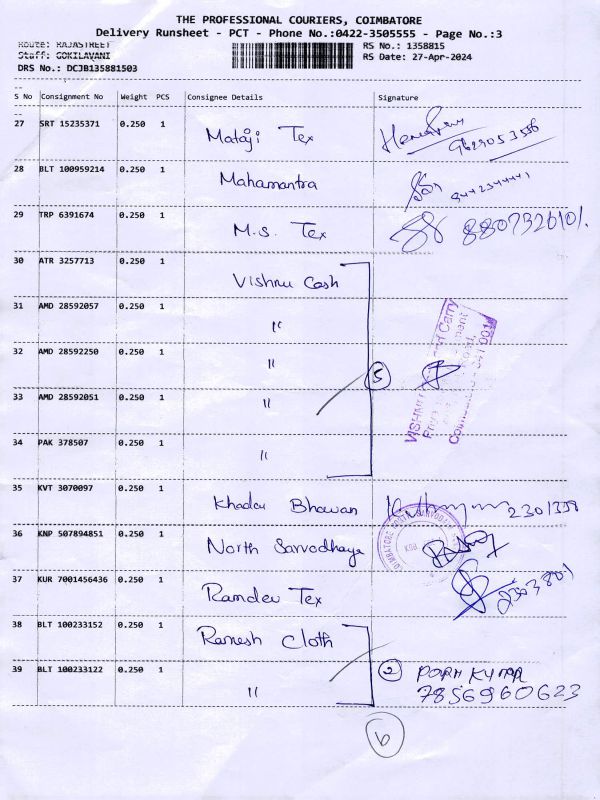 THE PROFESSIONAL COURIERS, COIMBATORE
Delivery Runsheet - PCT - Phone No.:0422-3505555 - Page No.:3
Route: RAJASTREET RS No.: 1358815
Staff: GOKILAVANI RS Date: 27-Apr-2024
DRS No.: DCJB135881503
S No Consignment No Weight PCS Consignee Details Signature
27 SRT 15235371 0.250 1 Mataji Tex
28 BLT 100959214 0.250 1 Mahamantra
29 TRP 6391674 0.250 1 M.S. Tex 8807326101.
30 ATR 3257713 0.250 1 Vishnu Cash
31 AMD 28592057 0.250 1 "
32 AMD 28592250 0.250 1 " 5
33 AMD 28592051 0.250 1 "
34 PAK 378507 0.250 1 "
35 KVT 3070097 0.250 1 Khadai Bhawan
36 KNP 507894851 0.250 1 North Sarvodhaya
37 KUR 7001456436 0.250 1 Ramdev Tex
38 BLT 100233152 0.250 1 Ramesh Cloth
39 BLT 100233122 0.250 1 " 2
7856960623
6